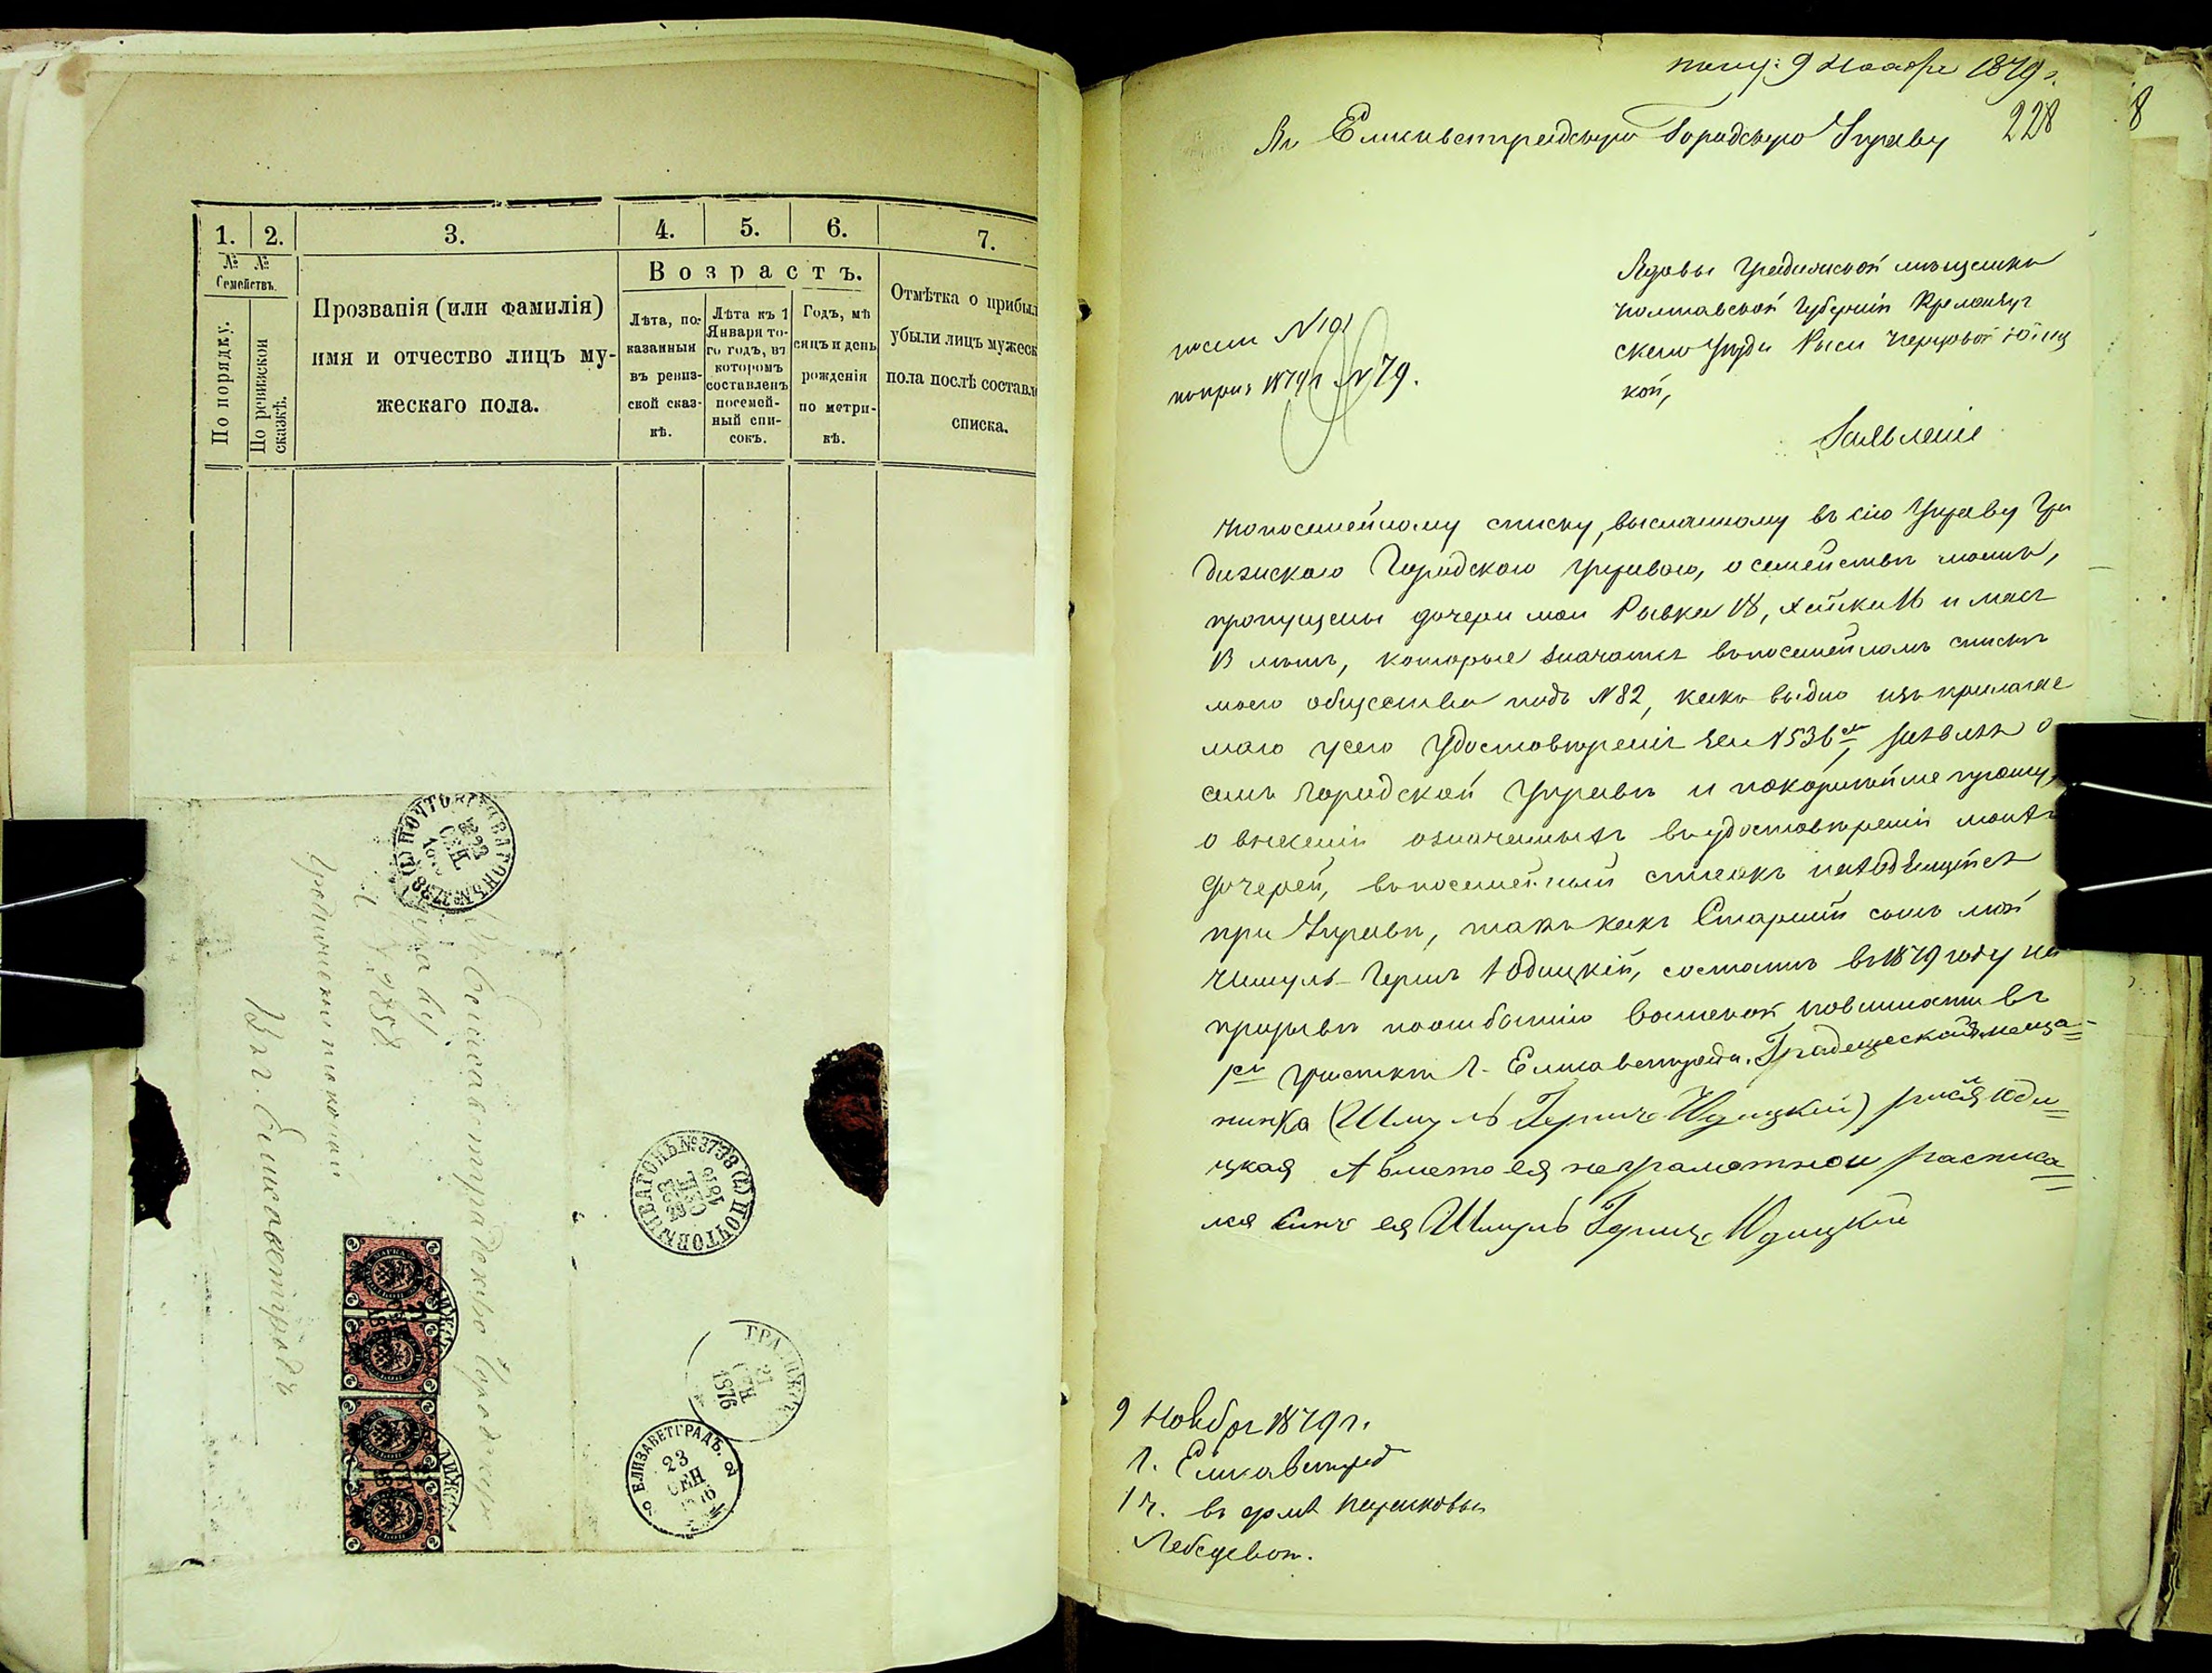 1. 2. 3. 4. 5. 6. 7.
№ №
Семействъ.
По порядку.
По ревизской
сказкѣ.
Прозванія (или фамилія)
имя и отчество лицъ му-
жескаго пола.
Возрастъ.
Лѣта, по-
казанныя
въ ревиз-
ской сказ-
кѣ.
Лѣта къ 1
Января то-
го годъ, въ
которомъ
составленъ
посемей-
ный спи-
сокъ.
Годъ, мѣ
сяцъ и день
рожденія
по метри-
кѣ.
Отмѣтка о прибыл
убыли лицъ мужеск
пола послѣ составл
списка.
ПОЧТОВЫЙ ВАГОНЪ № 3738 (1)
23
СЕН
Въ Елисаветградскую Городскую
Управу
Въ г. Елисаветградъ
ПОЧТОВЫЙ ВАГОНЪ № 3738 (1)
23
СЕН
ГРАДИЖСКЪ
21
СЕН
1876
ЕЛИЗАВЕТГРАДЪ. 2
23
СЕН
1876
получ: 9 Ноября 1879 г.
228
8
Въ Елисаветградскую Городскую Управу
Вдовы Градижской мѣщанки
Полтавской Губерніи Кременчуг
скаго Уѣзда Рыси Черновой Юдиц
кой,
Заявленіе
1879 г № 79.
Попосемейному списку, высланному въ сію Управу Гра
дижскою Городскою Управою, о семействѣ моемъ,
пропущены дочери мои Рывка 18, Хайка 16 и Мася
13 лѣтъ, которые значатся впосемейномъ спискѣ
моего общества подъ N 82, какъ видно изъ прилагае
маго усего Удостовѣренія за N 536м, заявляя о
семъ Городской Управѣ и покорнѣйше прошу,
о внесеніи означенныхъ въ удостовѣреніи моихъ
дочерей, впосемейный списокъ находящійся
при Управѣ, такъ какъ Старшій сынъ мой
Шмуль-Гершъ Юдицкій, состоитъ въ 1879 году на
призывѣ поотбытію Воинской повинности въ
1м участкѣ г. Елисаветграда. Градижская меща-
нинка (Шмуль Гершъ Юдицкій) рися Юди
цкая А вмето ея неграмотной расписа
лся Синъ ея Шмуль Гершъ Юдицкій
9 Ноября 1879 г.
г. Елисаветград
1 ч. въ домѣ
Лебедевой.